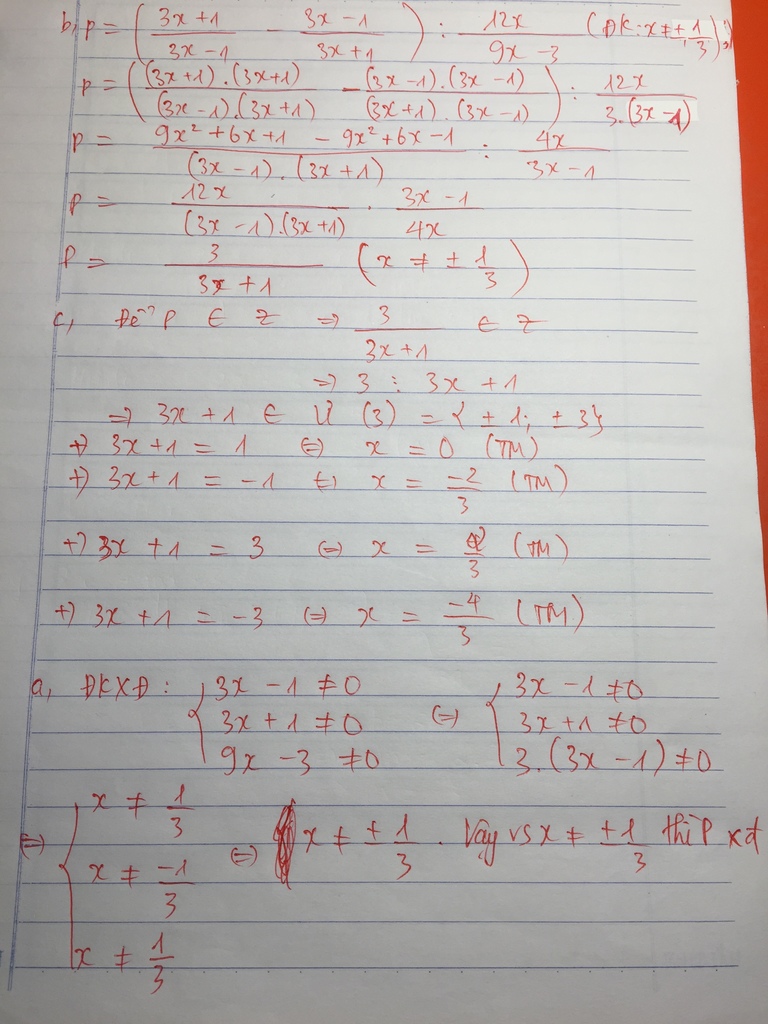 b, P = ( (3x+1)/(3x-1) - (3x-1)/(3x+1) ) : 12x/(9x-3) (ĐK: x ≠ ± 1/3)
P = ( ((3x+1).(3x+1))/((3x-1).(3x+1)) - ((3x-1).(3x-1))/((3x+1).(3x-1)) ) : 12x/(3.(3x-1))
P = (9x² + 6x + 1 - 9x² + 6x - 1)/((3x-1).(3x+1)) : 4x/(3x-1)
P = 12x/((3x-1).(3x+1)) . (3x-1)/4x
P = 3/(3x+1) (x ≠ ± 1/3)
c, Để P ∈ Z => 3/(3x+1) ∈ Z
=> 3 ⋮ 3x+1
=> 3x+1 ∈ Ư (3) = { ±1; ±3}
+) 3x+1 = 1 <=> x = 0 (TM)
+) 3x+1 = -1 <=> x = -2/3 (TM)
+) 3x+1 = 3 <=> x = 2/3 (TM)
+) 3x+1 = -3 <=> x = -4/3 (TM)
a, ĐKXĐ: { 3x-1 ≠ 0 <=> { 3x-1 ≠ 0
3x+1 ≠ 0 3x+1 ≠ 0
9x-3 ≠ 0 3.(3x-1) ≠ 0
<=> { x ≠ 1/3
x ≠ -1/3 <=> x ≠ ± 1/3 . Vậy vs x ≠ ± 1/3 thì P xđ
x ≠ 1/3